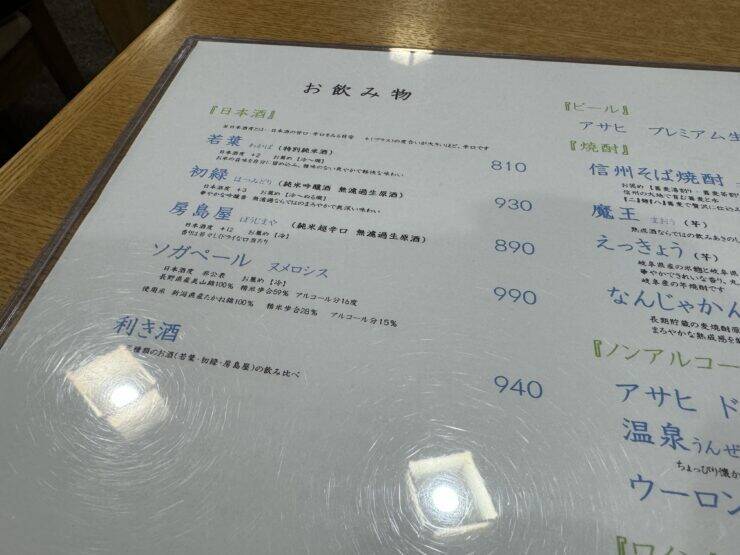 お飲み物
『日本酒』
※日本酒度とは…日本酒の甘口・辛口をみる目安 +(プラス)の度合いが大きいほど、辛口です
若葉 わかば (特別純米酒) 810
日本酒度 +2 お薦め【冷〜燗】
お米の旨味を存分に留め込み、雑味のない爽やかで軽快な味わい
初緑 はつみどり (純米吟醸酒 無濾過生原酒) 930
日本酒度 +3 お薦め【冷〜ぬる燗】
華やかな吟醸香 無濾過ならではのまろやかで奥深い味わい
房島屋 ぼうじまや (純米超辛口 無濾過生原酒) 890
日本酒度 +12 お薦め【冷】
香りは甘やしくドライな口当たり
ソガペール ヌメロシス 990
日本酒度 非公表 お薦め【冷】
長野県産美山錦100% 精米歩合59% アルコール分16度
使用米 新潟県産たかね錦100% 精米歩合28% アルコール分15%
利き酒 940
三種類のお酒(若葉・初緑・房島屋)の飲み比べ
『ビール』
アサヒ プレミアム生
『焼酎』
信州そば焼酎
お薦め【蕎麦湯割り
信州の大地で育む蕎麦と水
魔王 まおう (芋)
熟成酒ならではの飲みあきのし
えっきょう (芋)
岐阜県産の米麹と岐阜県
華やかできれいな香り、丸
岐阜県産の芋焼酎です
なんじゃかん
長期貯蔵の麦焼酎原
まろやかな熟成感を
『ノンアルコー
アサヒ ド
温泉 うんぜ
ちょっぴり懐か
ウーロン
『ワイ